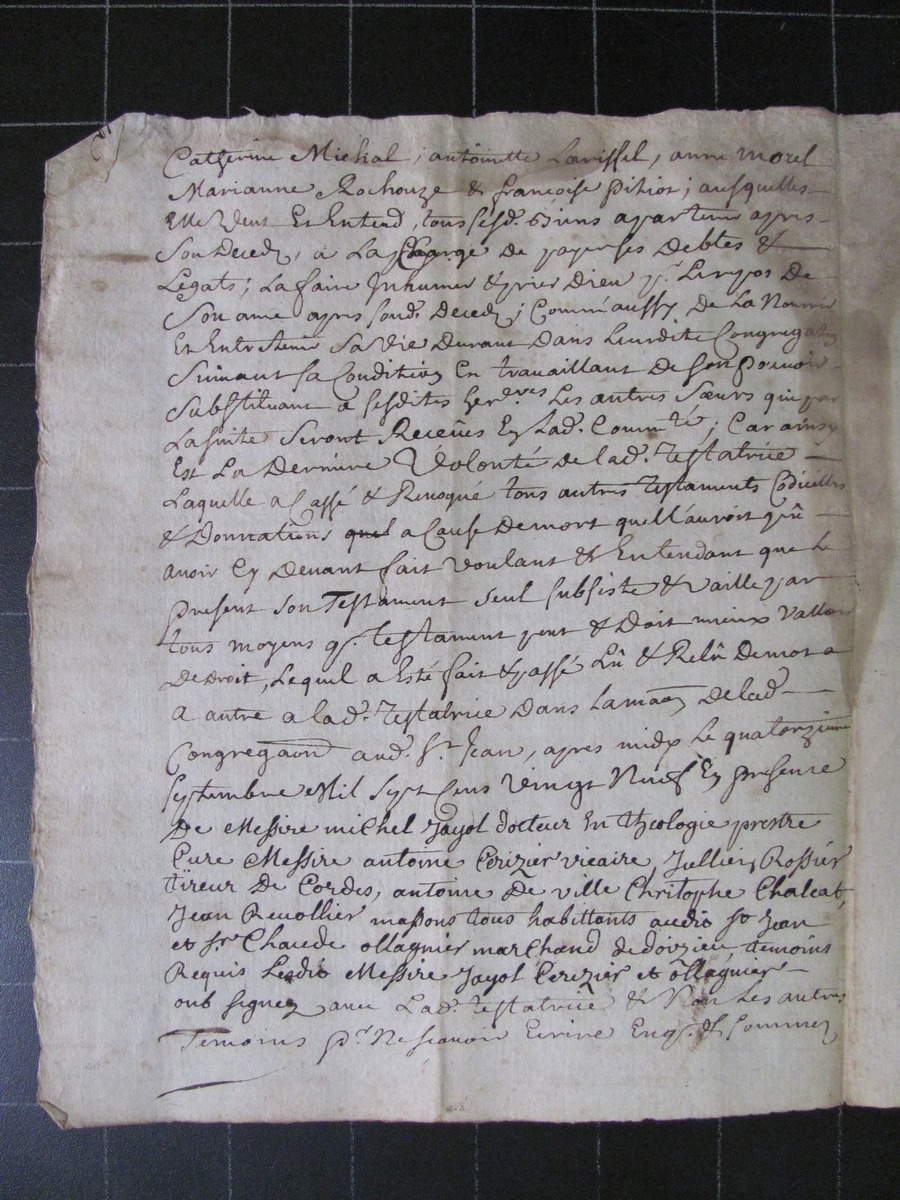 Catherine Michal, antoinette Lariffel, anne morel
Marianne Rochouze & francoise pitiot; ausquelles
elle veut Et Entend, tous sesd. biens apartenir apres
son Decedz, a La Charge De payer ses Debtes &
Legats; La faire Inhumer & prier Dieu pr. Le repos De
Son ame apres sond. Decedz; Comm'aussy De La Nourrir
Et Entretenir sa vie Durant Dans Leurdite Congregaton
Suivant sa Condition En travaillant De son pouvoir
Substituant a sesdites her.eres Les autres Sœurs qui par
La suite Seront Receües En Lad. Comm.té; Car ainsy
Est La Derniere Volonté de lad. Testatrice
Laquelle a Cassé & Revoqué tous autres Testaments Codicilles
& Donnations a Cause Demort quell'auroit pû
avoir Cy Devant fait voulant & Entendant que Le
present son Testament seul subsiste & vaille par
tous moyens q. Testament peut & Doit mieux Valloir
De Droit, Lequel a Esté fait & passé Lû & Relû Demot a
a autre a lad. Testatrice Dans La maon De lad.
Congregaon aud. St. Jean, apres midy Le quatorzieme
Septembre Mil Sept Cens Vingt Neuf En presence
De Messire miChel Jayol docteur En theologie prestre
Cure Messire antoine Cerizier vicaire, Jullien Rossier
tireur De Cordes, antoine De ville Christophe Chalcat,
Jean Revollier massons tous habittants audit St Jean
et Sr Claude ollagnier marchand de doizieu, temoins
Requis Lesdits Messire Jayol Cerizier et ollagnier
ont signez avec Lad. testatrice & Non Les autres
Temoins pr. Ne scavoir Ecrire Enq. & Sommez